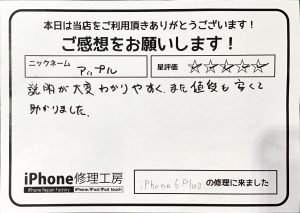 本日は当店をご利用頂きありがとうございます！
ご感想をお願いします！
ニックネーム アップル 星評価 ☆☆☆☆☆
説明が大変わかりやすく、また値段も安くて
助かりました。
iPhone修理工房
iPhone Repair Factory iPhone/iPad/iPod touch
iPhone 6 Plus の修理に来ました